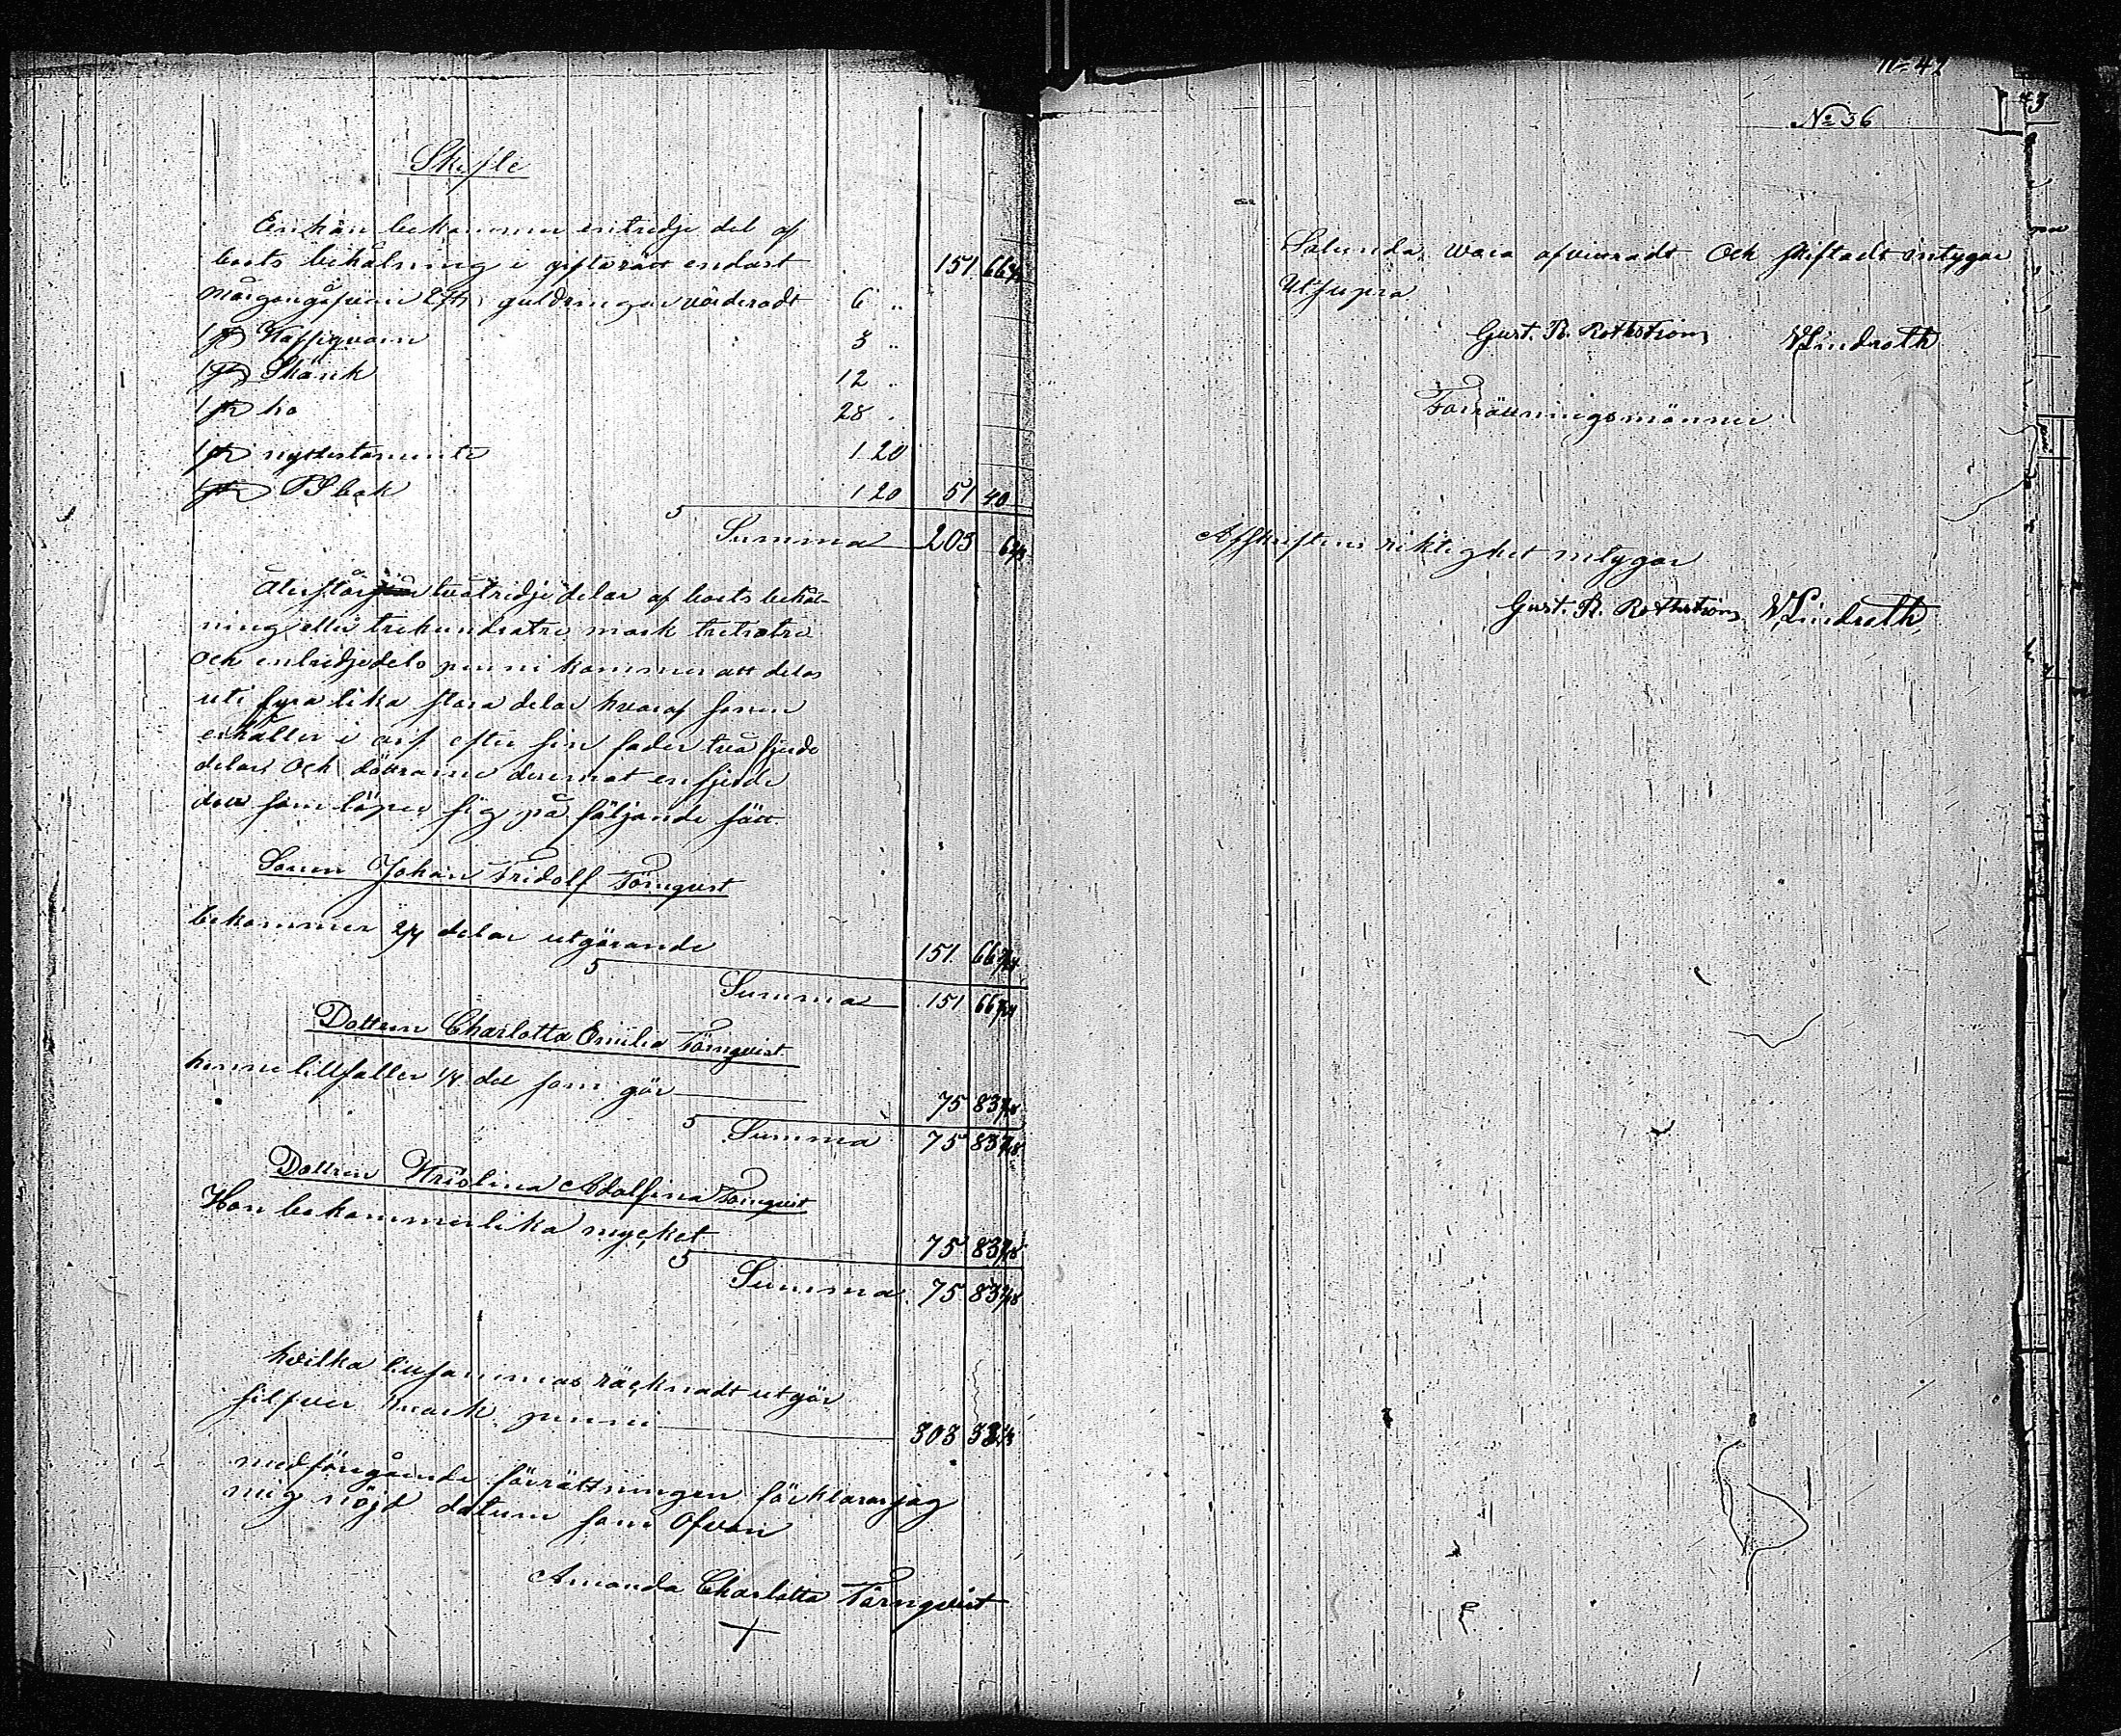 Skifte
Enkan bekommer entredje del af
boets behålning i giftorätt endast 151 66 2/3
Morgongåfvan 2 st guldringar värderadt 6 "
1 st Kaffiqvarn 3 "
1 st Skänk 12 "
1 st ko 28 "
1 st nyttestamente 1 20
1 st PS bok 1 20 51 40
Summa 203 6 2/3
Återstår tvåtridjedelar af boets behål-
ning eller trehundratre mark trettiotre
och entredjedels penni kommer att delas
uti fyra lika stora delar hvaraf sonen
erhåller i arf efter sin fader två fjerde
delar och döttrarne deremot en fjerde
del som löper sig på följande sätt.
Sonen Johan Fridolf Törnqvist
bekommer 2/4 delar utgörande 151 66
Summa 151 66
Dottren Charlotta Emilia Törnqvist
henne tillfaller 1/4 del som gör 75 83
Summa 75 83
Dottren Kristina Adolfina Törnqvist
Hon bekommer lika mycket 75 83
Summa 75 83
hvilka tillsammas räcknadt utgör
silfver mark penni 303 33 1/3
med föregående förrättningen förklarar jag
mig nöjd datum som ofvan
Amanda Charlotta Törnqvist
+
No 42
No 36
Salunda vara afvittradt och skiftadt intygar
Utsupra
Gust. R. Rothström W Lindroth
Förrättningsmänner
Afskriftens riktighet intygar
Gust. R. Rothström W Lindroth